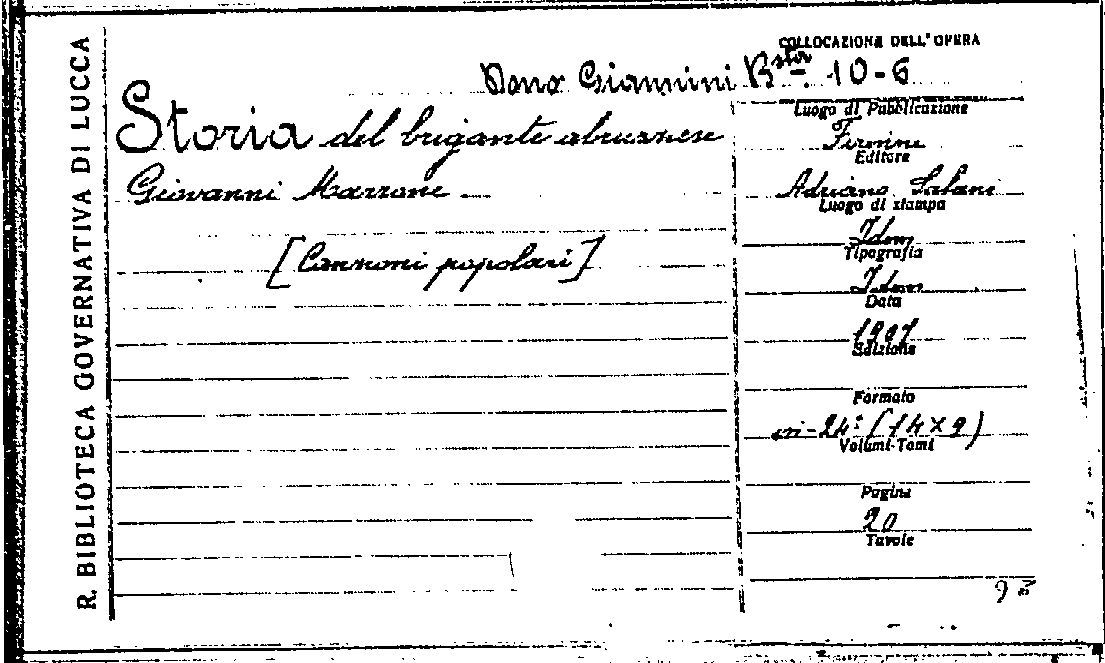 R. BIBLIOTECA GOVERNATIVA DI LUCCA
COLLOCAZIONE DELL' OPERA
Dono Giannini Bsta 10-6
Storia del brigante abruzzese
Giovanni Marrone
[Canzoni popolari]
Luogo di Pubblicazione
Firenze
Editore
Adriano Salani
Luogo di stampa
Idem
Tipografia
Idem
Data
1907
Edizione
Formato
in-24° (14x9)
Volumi-Tomi
Pagine
20
Tavole